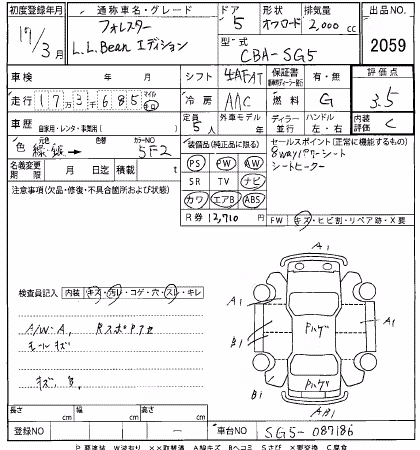 初度登録年月
17/3月
通称車名・グレード
フォレスター
L.L.Bean エディション
ドア
5
形状
オフロード
排気量
2,000cc
型式
CBA-SG5
出品NO
2059
車検 年 月
シフト
4AF AT
保証書
有・無
評価点
3.5
走行
173千685
マイル
km
冷房
AAC
燃料
G
内装評価
C
車歴
自家用・レンタ・事業用( )
定員
5人
外車モデル
年
ディーラー
並行
ハンドル
左・右
色
元色
緑銀
色替
カラーNO
5F2
名義変更期限 月 日迄
積載 t
装備品(純正品に限る)
PS PW AW
SR TV ナビ
カワ エアB ABS
R券 12,710 円
セールスポイント(正常に機能するもの)
8wayパワーシート
シートヒーター
注意事項(欠品・修復・不具合箇所および状態)
FW キズ・ヒビ割・リペア跡・X要
検査員記入
内装 キズ・汚レ・コゲ・穴・スレ・キレ
A/W・A. RスポPアセ
モールキズ
キズ
A1
A1
A1
B1
B1
Pハゲ
Pハゲ
AB1
長さ cm
幅 cm
高さ cm
登録NO
車台NO
SG5-087186
P要塗装 W波有り XX取替済 A線キズ Bヘコミ Sさび X要交換 C腐食